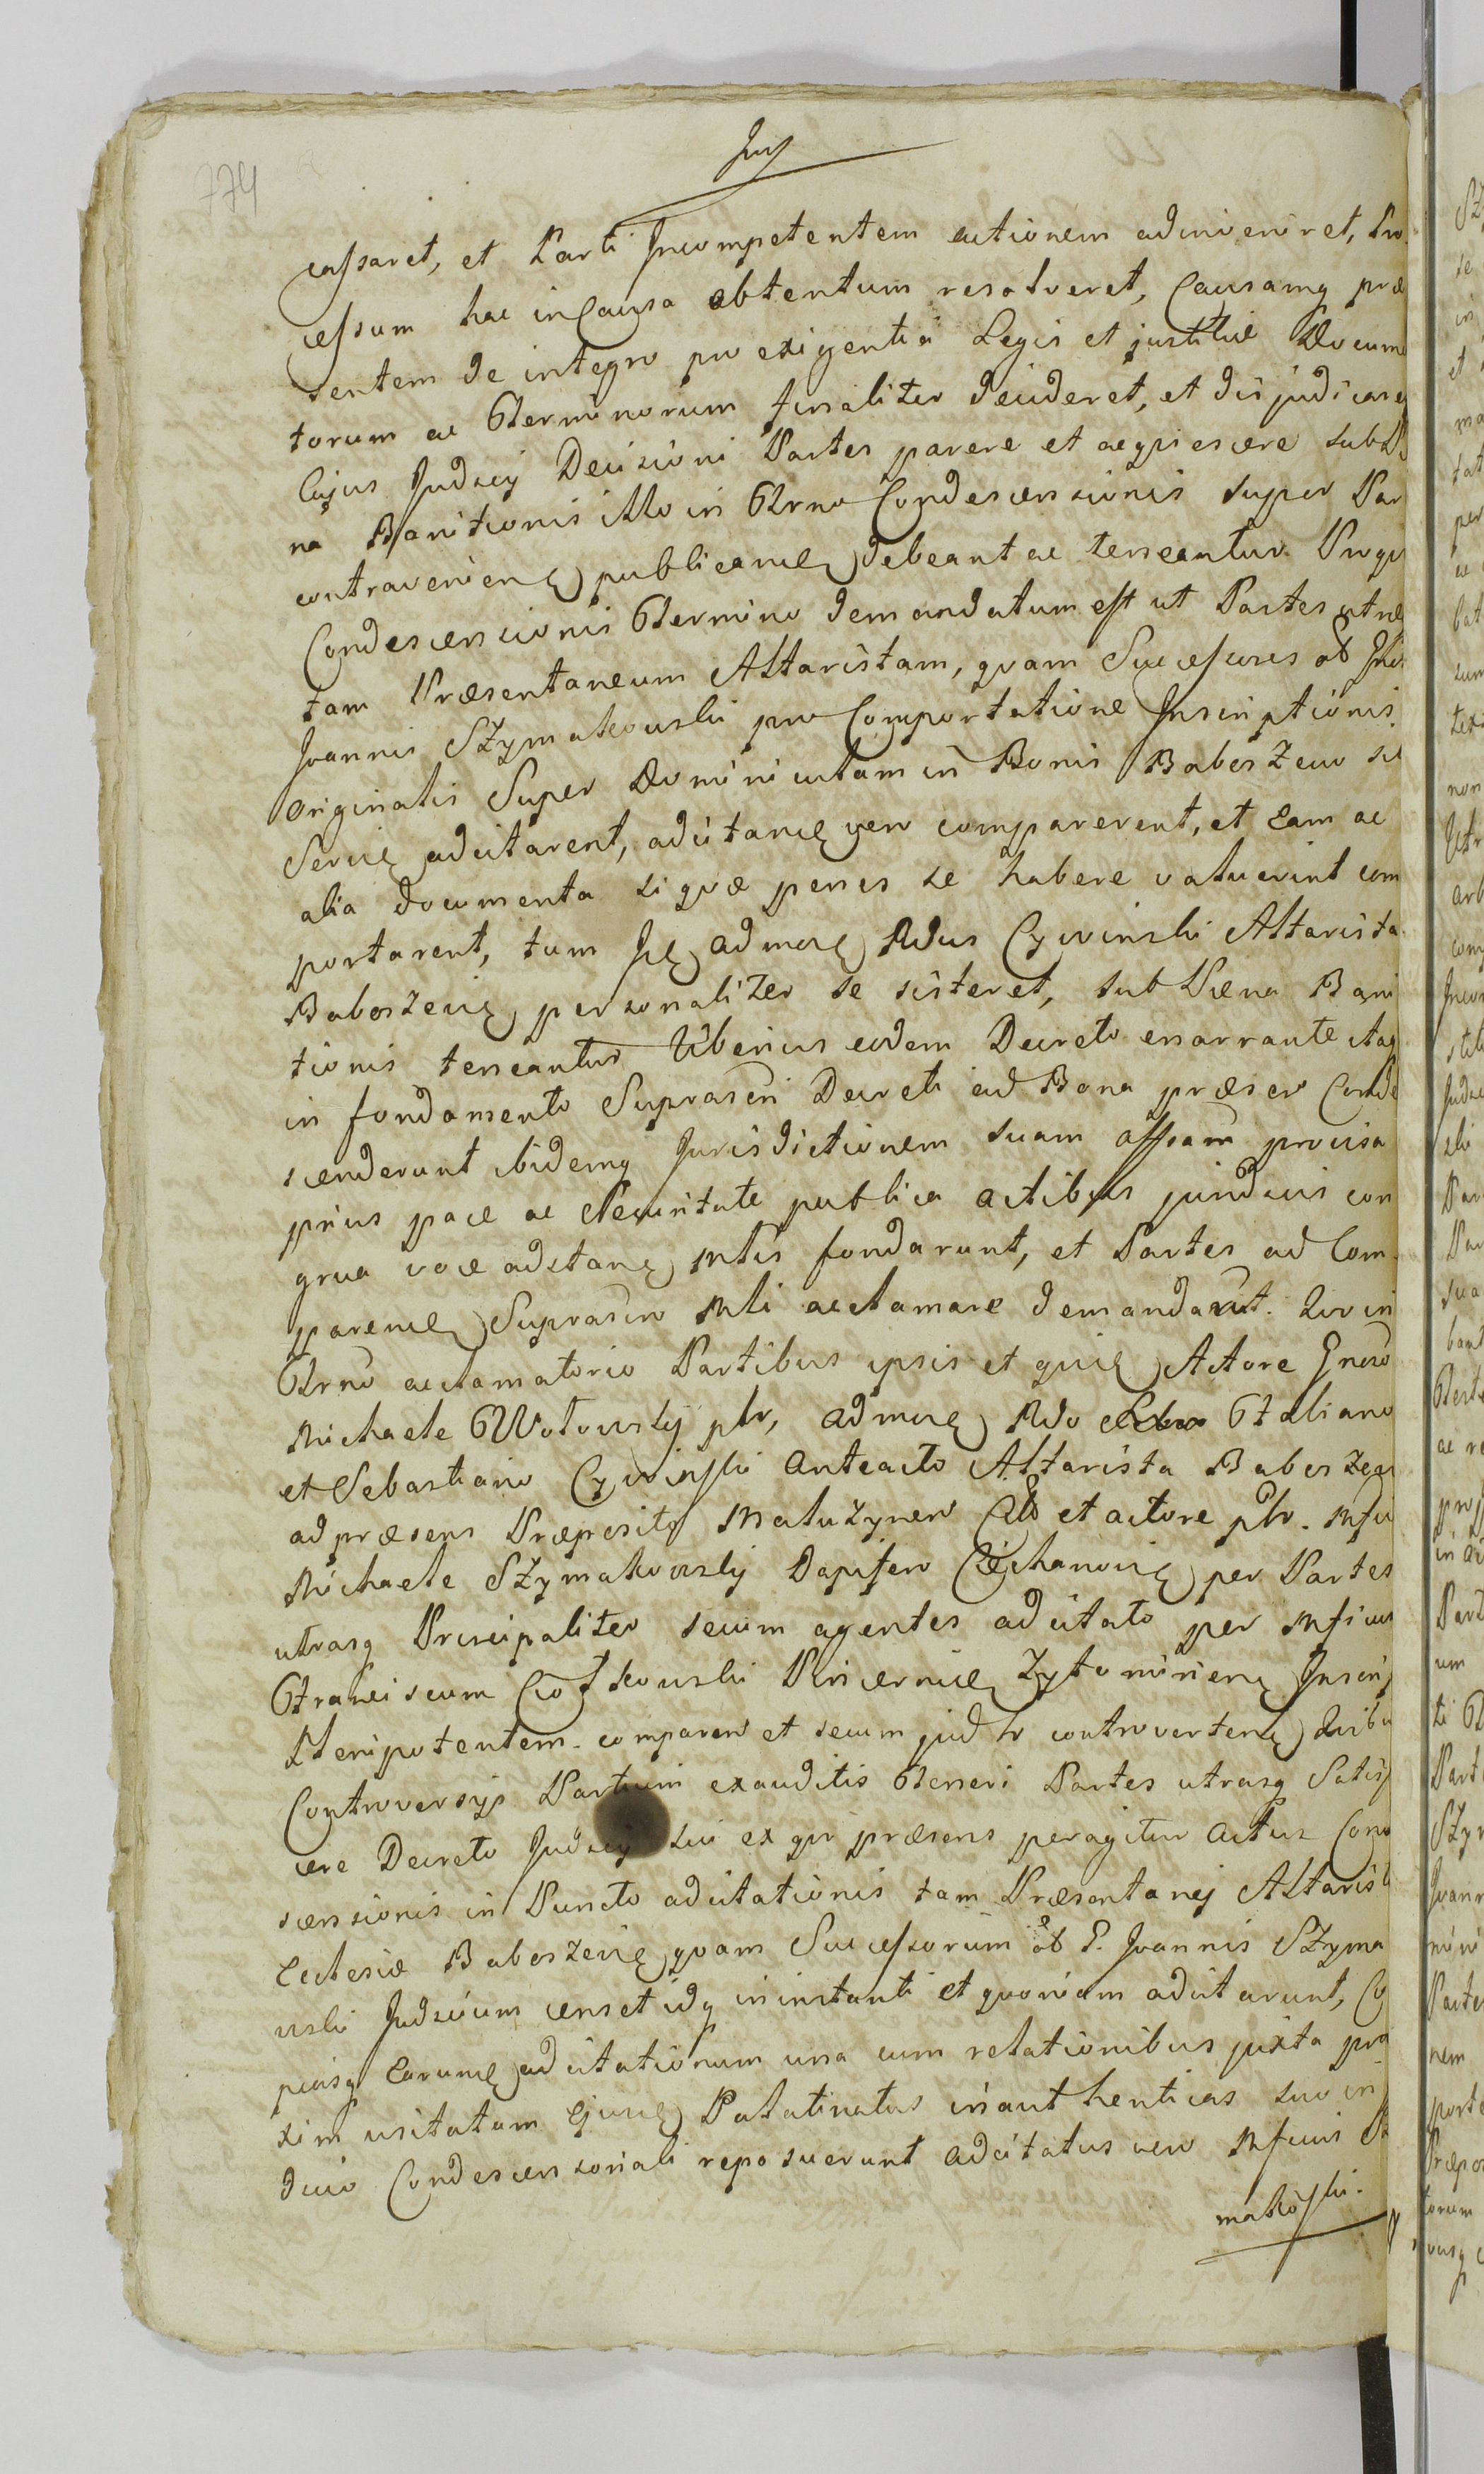 774
cassaret, et Parti Incompetentem actionem adinveniret, Pro
cessum hac in Causa obtentum resolveret, Causamq præ
sentem de integro pro exigentia Legis et justitiæ Docume
torum ac Terminorum finaliter decideret, et disjudicaret
Cujus Judicij Decisioni Partes parere et acquiescere sub Pæ
na Banitionis illo in Trno Condescensionis super Par
contravenien publicanda debeant ac teneantur. Proqu
Condescensionis Termino demandatum est ut Partes utræ
tam Præsentaneum Altaristam, quam Successores olim
Joannis Szymakowski pro Comportatione Inscriptionis
Originalis Super Dominiculam in Bonis Baboszewo
Servien adcitarent, adcitati vero comparerent, et Eam ac
alia documenta si quæ penes se habere valuerint com
portarent, tum admdum Rdus Cywinski Altarista
Baboszevien personaliter se sisteret, sub Pæna Bani
tionis teneantur Uberius eodem Decreto enarrante itaq
in fondamento Suprascri Decreti ad Bona præsen Conde
scenderunt ibidemq Jurisdictionem suam offsam provisa
prius pace ac Securitate publica actibus juridicis con
grua voce adstan Mlis fondarunt, et Partes ad Com
paren Suprascr Mli acclamare demandarut. Quo in
Trno acclamatorio Partibus ipsis et qui Actore Gnoso
Michaele Wotowskij plr, admdum Rdo Italiano
et Sebastiano Cywinski anteacto Altarista Baboszev
ad præsens Præposito Maluzynen Ctto et actore plr. Mfco
Michaele Szymakowskij Dapifero Ciechanovien per Partes
utrasq Principaliter secum agentes adcitato per Mficum
Franciscum Pincernam Zytomirien
Plenipotentem comparen et secum judlr controverten Quibus
Controversys Partium exauditis Teneri Partes utrasq Satisf
cere Decreto Judicij sui ex quo præsens peragitur actus Con
scensionis in Puncto adcitationis tam Præsentanej Altaris
Ecclesiæ Baboszevien quam Successorum ol P. Joannis Szyma
wski Judicium censet idq in instanti et quoniam adcitarunt, Co
piasq Earum adcitationum una cum relationibus juxta pra
xim usitatam Palatinatus in authenticas suo in
dicio Condescensoriali reposuerunt adcitatus vero Mficus
makoski.